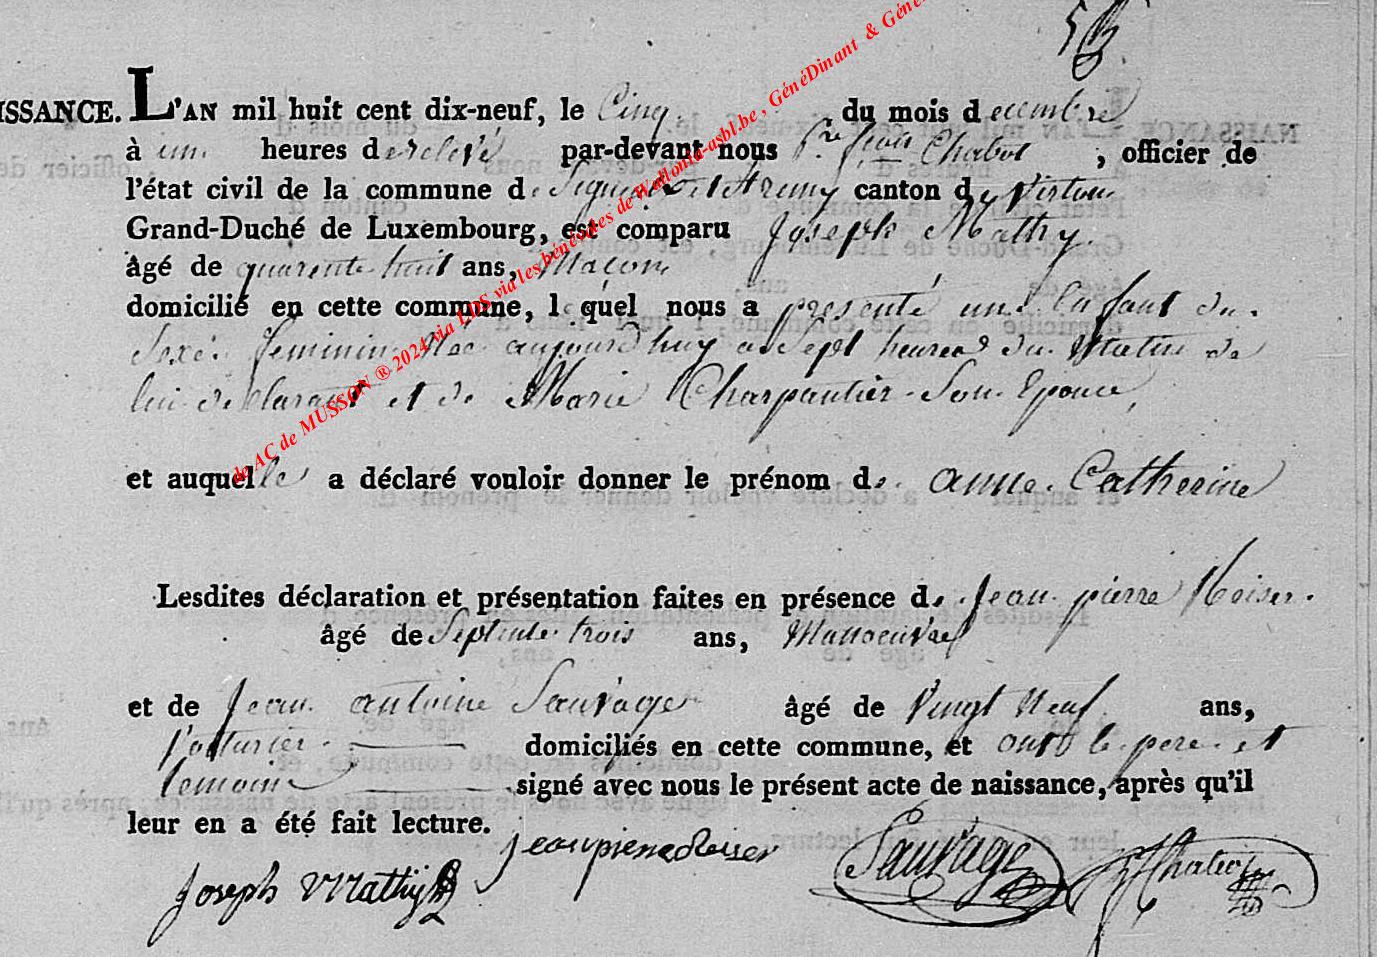 ISSANCE. L'AN mil huit cent dix-neuf, le Cinq du mois decembre
à une heures de relevé par-devant nous Pre Jean Chabot, officier de
l'état civil de la commune de Signeulx et canton de Virton
Grand-Duché de Luxembourg, est comparu Joseph Mathy.
âgé de quarente huit ans, Maçon
domicilié en cette commune, lequel nous a presenté une Enfant du
Sexe feminin Née aujourd'huy a Sept heures du Matin de
lui declarant et de Marie Charpantier Son Epouce,
et auquelle a déclaré vouloir donner le prénom de anne Catherine
Lesdites déclaration et présentation faites en présence de Jean pierre Roiser
âgé de Septente trois ans, Manoeuvre
et de Jean antoine Sauvage âgé de Vingt Neuf ans,
domiciliés en cette commune, et ont le pere et
temoins signé avec nous le présent acte de naissance, après qu'il
leur en a été fait lecture.
jean pierre Roiser
Sauvage
Chabot
Joseph Mathy
de AC de MUSSON ® 2024 via LDS via les bénévoles de Wallonia-asbl.be , GénéDinant & Géné